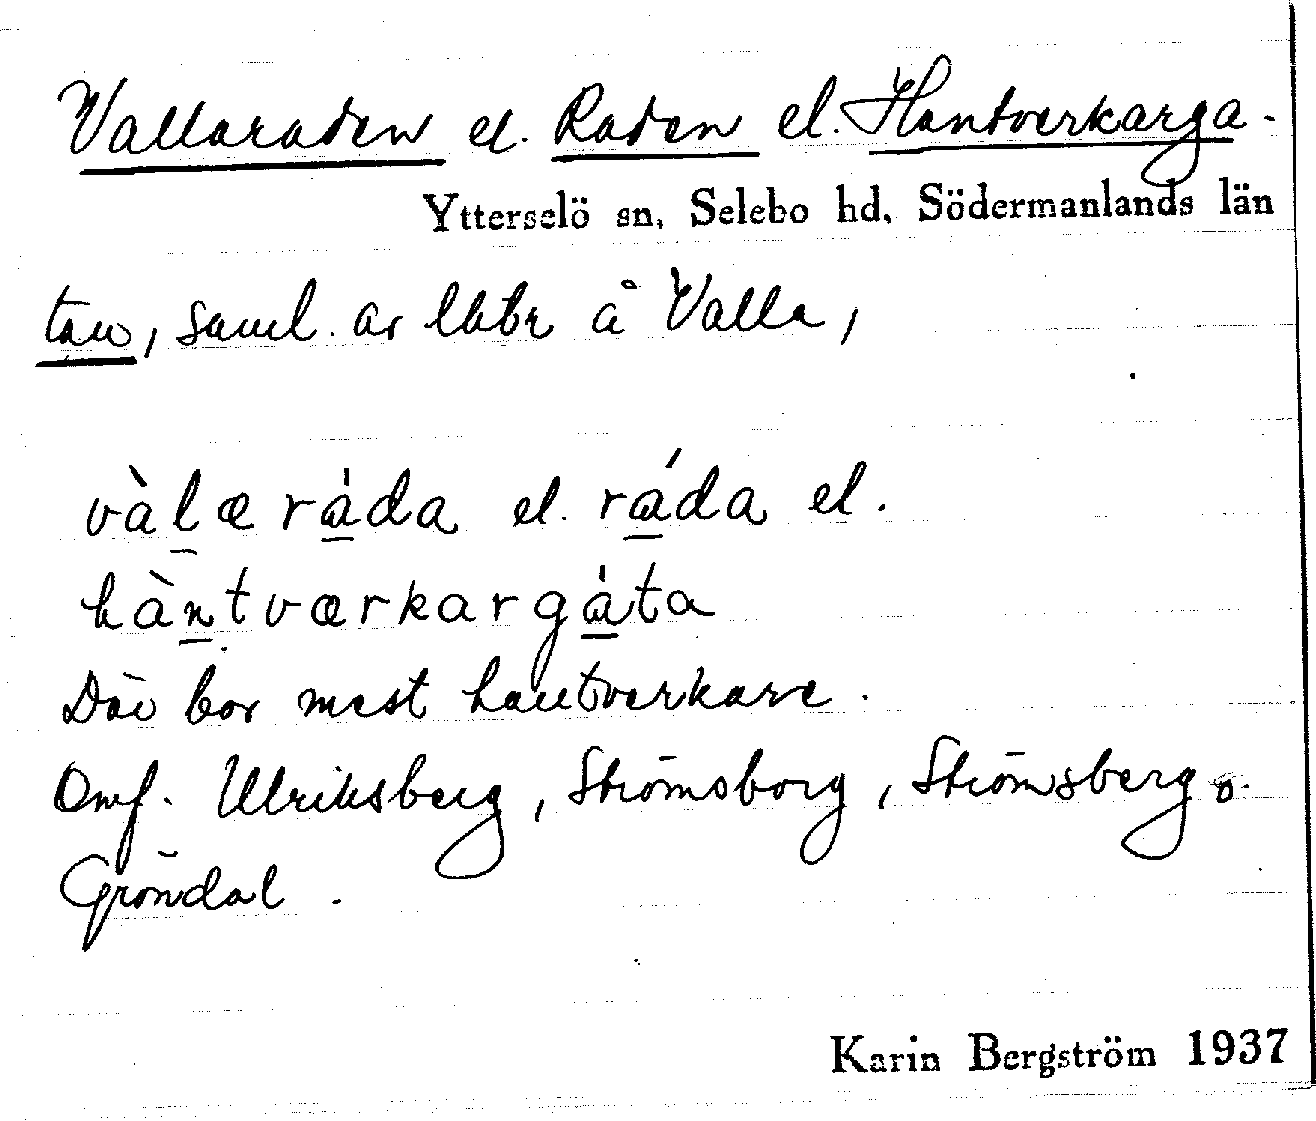 Vallaraden el. Raden el. Hantverkarga-
Ytterselö sn, Selebo hd, Södermanlands län
tan, saml. av lhtbr å Valla,
vàlæráda el. ráda el.
hàntværkargáta
Där bor mest hantverkare.
Omf. Ulriksberg, Strömsborg, Strömsberg o.
Gröndal.
Karin Bergström 1937